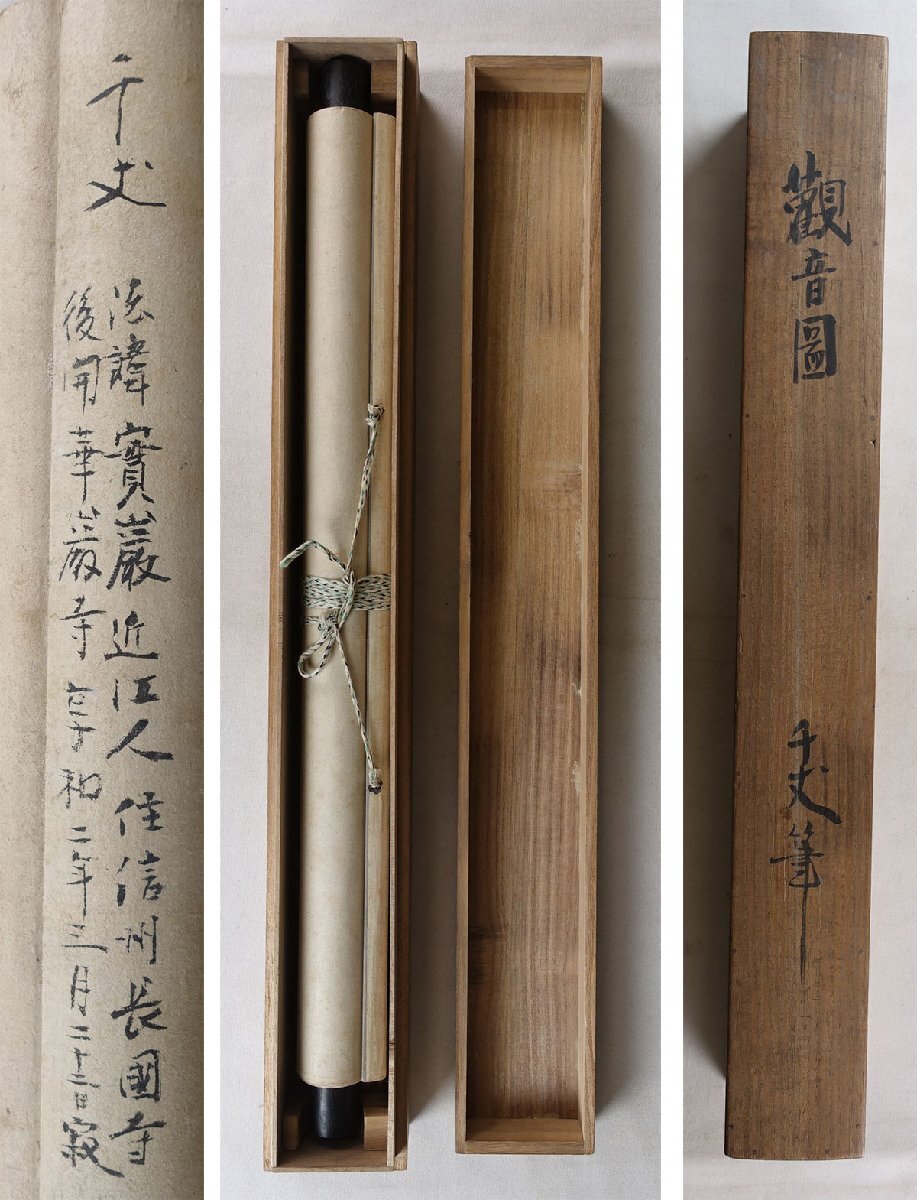 千丈
法諱實巖近江人住信州長國寺
後開華嚴寺享和二年三月二十二日寂
觀音圖
千丈筆